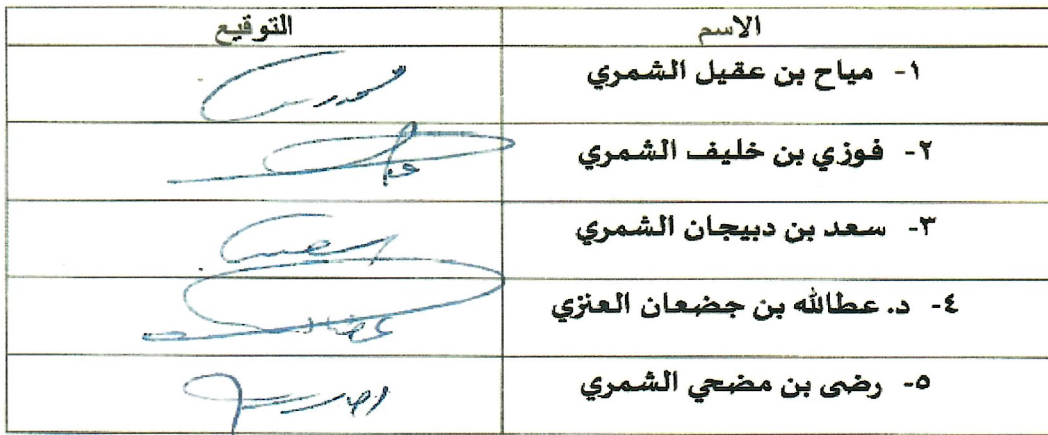 الاسم التوقيع
١- مياح بن عقيل الشمري
٢- فوزي بن خليف الشمري
٣- سعد بن دبيجان الشمري
٤- د. عطالله بن جضعان العنزي
٥- رضى بن مضحي الشمري